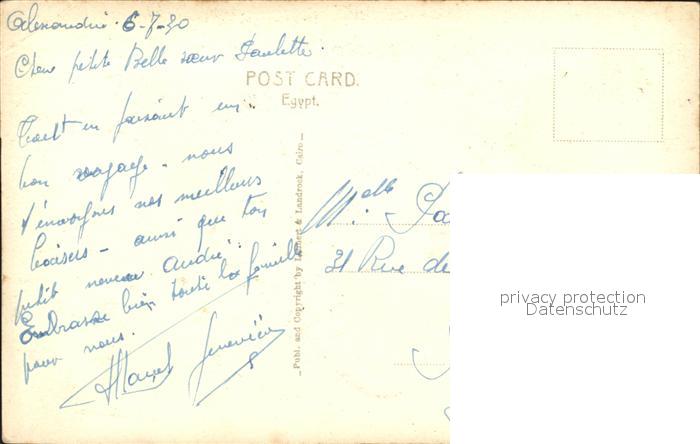 Alexandrie. 6-7-30
Chere petite Belle sœur Paulette.
POST CARD.
Egypt.
Tout en faisant un
bon voyage. nous
t'envoyons nos meilleurs
baisers - ainsi que ton
petit neveu André.
Embrasse bien toute la famille
pour nous.
Marcel Geneviève
Publ. and Copyright by Lehnert & Landrock, Cairo
Mlle
31 Rue de
privacy protection
Datenschutz